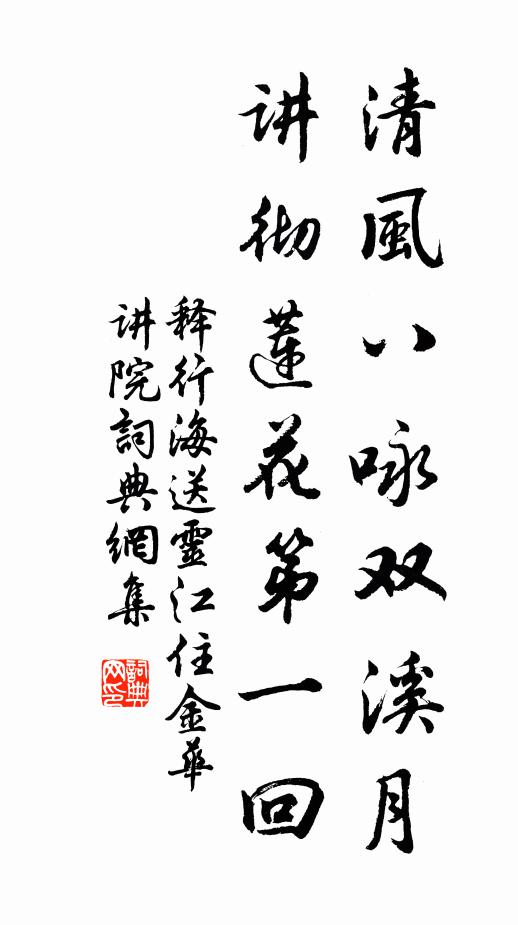 清風八咏双溪月
讲彻蓮花第一回
释行海送靈江住金華
讲院詞典網集
詞典网印